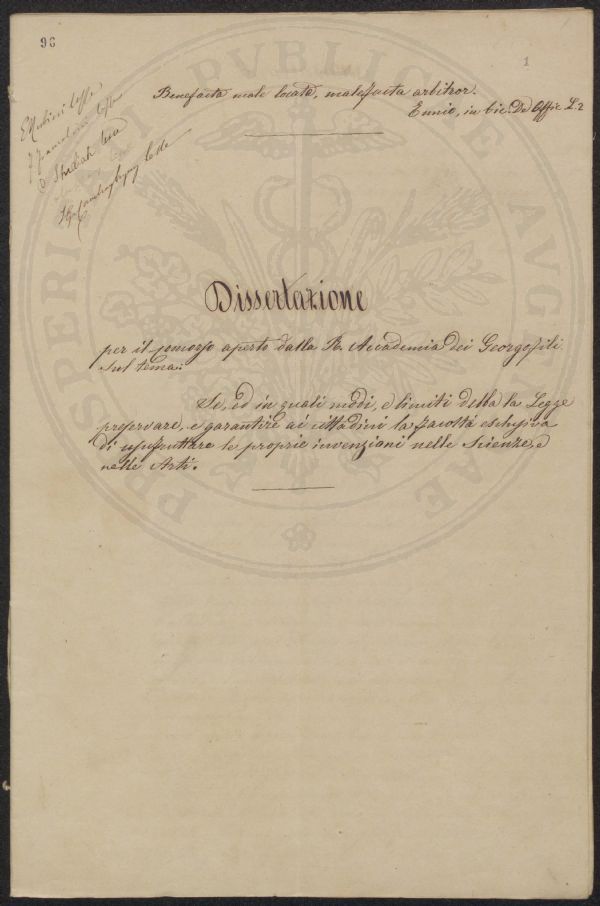 96
1
Benefacta male locata, malefacta arbitror.
Ennio, in Cic. De Offic. L. 2
E Rubini lesse
lesse
lesse
Dissertazione
per il concorso aperto dalla R. Accademia dei Georgofili
sul tema:
Se, ed in quali modi, e limiti debba la Legge
preservare, e garantire ai cittadini la facoltà esclusiva
di usufruttare le proprie invenzioni nelle Scienze, e
nelle Arti.
PROSPERITATI PVBLICAE AVGENDAE